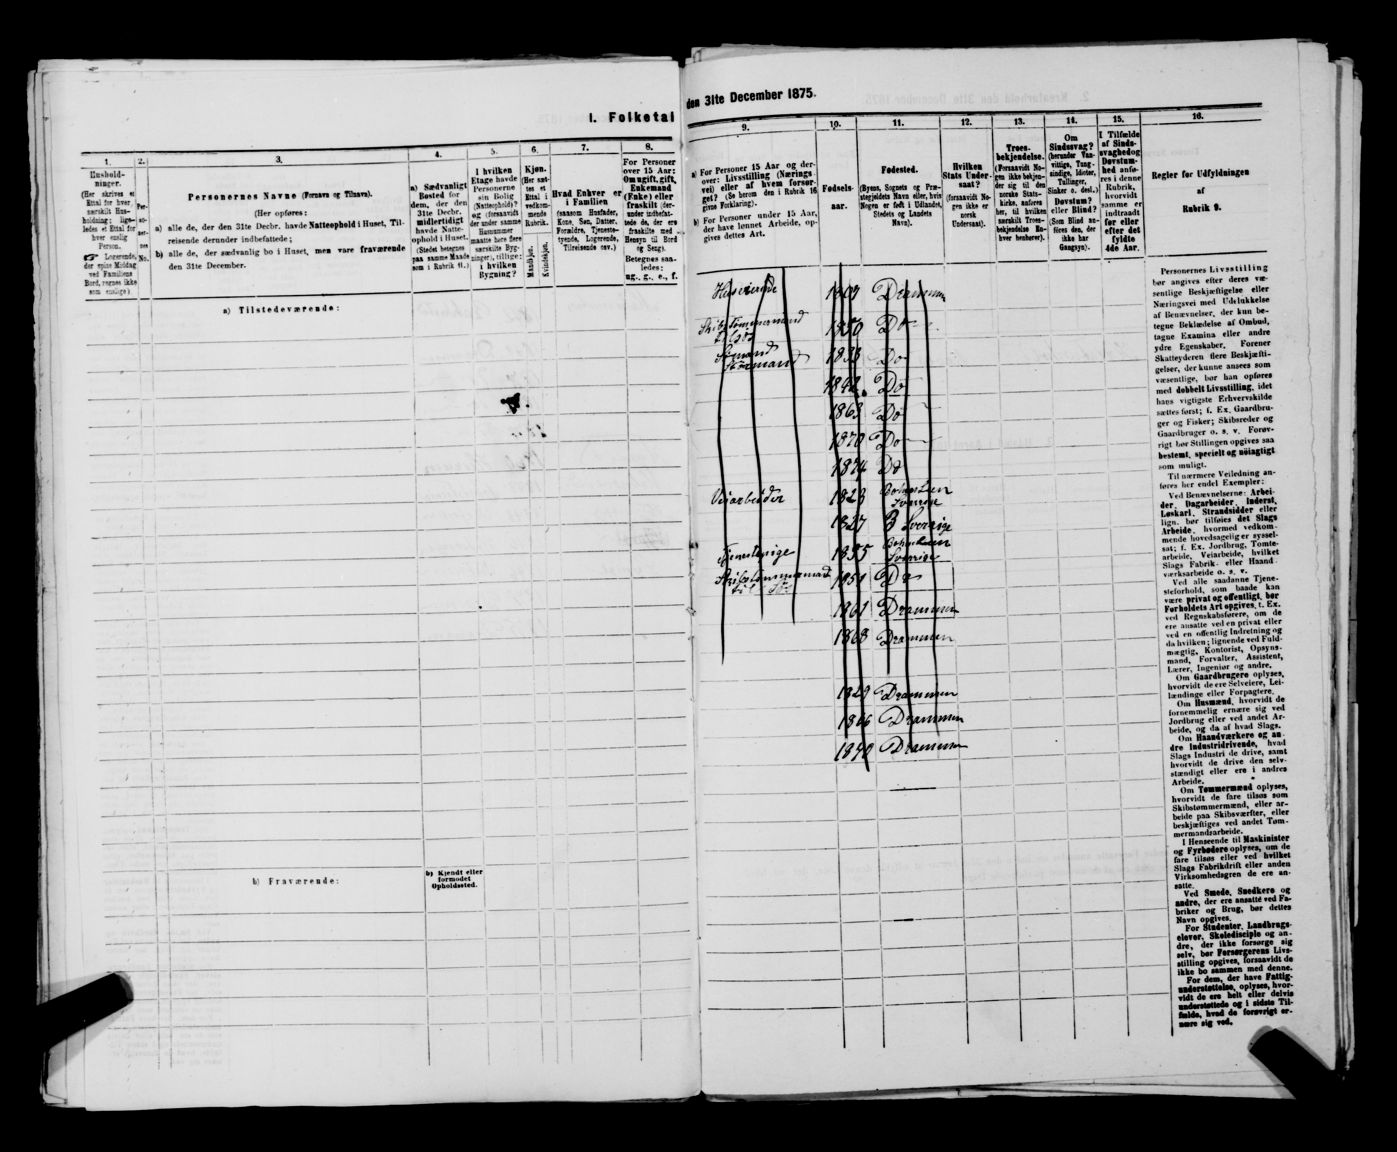 I. Folketal
den 31te December 1875.
1.
Husholdninger.
(Her skrives et
Ettal for hver
særskilt Husholdning;
ligeledes et Ettal for
hver enslig
Person.
Logerende,
der spise Middag
ved Familiens
Bord, regnes ikke
som enslige).
2.
Personernes
No.
3.
Personernes Navne (Fornavn og Tilnavn).
(Her opføres:
a) alle de, der den 31te Decbr. havde Natteophold i Huset, Tilreisende
derunder indbefattede;
b) alle de, der sædvanlig bo i Huset, men vare fraværende
den 31te December.
4.
a) Sædvanligt
Bosted for
dem, der den
31te Decbr.
midlertidigt
havde Natteophold
i Huset.
(Stedet betegnes
paa samme Maade
som i Rubrik 11.)
5.
I hvilken
Etage havde
Personerne
sin Bolig
(Natteophold)?
og (forsaavidt
der under samme
Husnummer
maatte høre flere
særskilte Bygninger),
tillige:
i hvilken
Bygning?
6.
Kjøn.
(Her sættes
et
Ettal i
vedkommende
Rubrik.)
Mandkjøn.
Kvindekjøn.
7.
Hvad Enhver er
i Familien
(saasom Husfader,
Kone, Søn, Datter,
Forældre, Tjenestetyende,
Logerende,
Tilreisende osv.)
8.
For Personer
over 15 Aar:
Om ugift, gift,
Enkemand
(Enke) eller
fraskilt (derunder
indbefattede
de, der ere
fraskilte med
Hensyn til Bord
og Seng).
Betegnes saaledes:
ug., g., e., f.
9.
a) For Personer 15 Aar og derover:
Livsstilling (Næringsvei)
eller af hvem forsørget?
(Se herom den i Rubrik 16
givne Forklaring).
b) For Personer under 15 Aar,
der have lønnet Arbeide, opgives
dettes Art.
10.
Fødselsaar.
11.
Fødested.
(Byens, Sognets og Præstegjeldets
Navn eller, hvis
Nogen er født i Udlandet,
Stedets og Landets
Navn).
12.
Hvilken
Stats Undersaat?
(forsaavidt Nogen
ikke er
norsk
Undersaat).
13.
Troesbekjendelse.
(Forsaavidt Nogen
ikke bekjender
sig til den
norske Statskirke,
anføres
her, til hvilken
særskilt Troesbekjendelse
Enhver
henhører).
14.
Om
Sindssvag?
(herunder Vanvittige,
Tungsindige,
Idioter,
Tullinger,
Sinker o. desl.)
Døvstum?
eller Blind?
(Som Blind anføres
den, der
ikke har
Gangsyn).
15.
I Tilfælde
af Sindssvaghed
og
Døvstumhed
anføres
i denne
Rubrik,
hvorvidt
samme er
indtraadt
før eller
efter det
fyldte
4de Aar.
16.
Regler for Udfyldningen
af
Rubrik 9.
a) Tilstedeværende:
b) Fraværende:
b) Kjendt eller
formodet
Opholdssted.
Huseierende 1807 Drammen
Skibstømmermand 1850 Do
Sømand
Styrmand 1838 Do
1842 Do
1863 Do
1870 Do
1874 Do
Veiarbeider 1823
Sverige
1827 Sverige
Tjenestepige 1855
Sverige
Skibstømmermand 1851 Do
1861 Drammen
1868 Drammen
1829 Drammen
1866 Drammen
1840 Drammen
Personernes Livsstilling
bør angives efter deres væsentlige
Beskjæftigelse eller
Næringsvei med Udelukkelse
af Benævnelser, der kun betegne
Beklædelse af Ombud,
tagne Examina eller andre
ydre Egenskaber. Forener
Skatteyderen flere Beskjæftigelser,
der kunne ansees som
væsentlige, bør han opføres
med dobbelt Livsstilling, idet
hans vigtigste Erhvervskilde
sættes først; f. Ex. Gaardbruger
og Fisker; Skibsreder og
Gaardbruger o. s. v. Forøvrigt
bør Stillingen opgives saa
bestemt, specielt og nøiagtigt
som muligt.
Til nærmere Veiledning anføres
her endel Exempler:
Ved Benævnelserne: Arbeider,
Dagarbeider, Inderst,
Løskarl, Strandsidder eller
lign. bør tilføies det Slags
Arbeide, hvormed vedkommende
hovedsagelig er sysselsat;
f. Ex. Jordbrug, Tomtearbeide,
Veiarbeide, hvilket
Slags Fabrik- eller Haandværksarbeide
o. s. v.
Ved alle saadanne Tjenesteforhold,
som baade kan
være privat og offentligt, bør
Forholdets Art opgives, f. Ex.
ved Regnskabsførere, om de
ere ansatte ved en privat eller
ved en offentlig Indretning og
da hvilken; lignende ved Fuldmægtig,
Kontorist, Opsynsmand,
Forvalter, Assistent,
Lærer, Ingeniør og andre.
Om Gaardbrugere oplyses,
hvorvidt de ere Selveiere, Leilændinge
eller Forpagtere.
Om Husmænd, hvorvidt de
fornemmelig ernære sig ved
Jordbrug eller ved andet Arbeide,
og da af hvad Slags.
Om Haandværkere og andre
Industridrivende, hvad
Slags Industri de drive, samt
hvorvidt de drive den selvstændigt
eller ere i andres
Arbeide.
Om Tømmermænd oplyses,
hvorvidt de fare tilsøs som
Skibstømmermænd, eller arbeide
paa Skibsværfter, eller
beskjæftiges ved andet Tømmermandsarbeide.
I Henseende til Maskinister
og Fyrbødere oplyses, om de
fare tilsøs eller ved hvilket
Slags Fabrikdrift eller anden
Virksomhedsgren de ere ansatte.
Ved Smede, Snedkere og
andre, der ere ansatte ved Fabriker
og Brug, bør dettes
Navn opgives.
For Studenter, Landbrugselever,
Skoledisciple og andre,
der ikke forsørge sig
selv, bør Forsørgerens Livsstilling
opgives, forsaavidt de
ikke bo sammen med denne.
For dem, der have Fattigunderstøttelse,
oplyses, hvorvidt
de ere helt eller delvis
understøttede og i sidste Tilfælde,
hvad de forøvrigt ernære
sig ved.